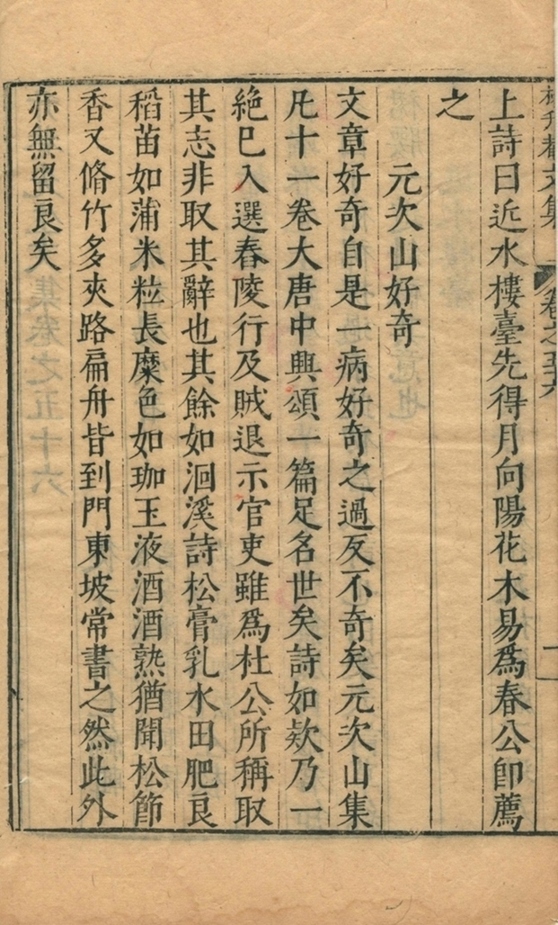 上詩曰近水樓臺先得月向陽花木易爲春公卽薦
之
元次山好奇
文章好奇自是一病好奇之過反不奇矣元次山集
凡十一卷大唐中興頌一篇足名世矣詩如欸乃一
絶巳入選舂陵行及賊退示官吏雖爲杜公所稱取
其志非取其辭也其餘如洄溪詩松膏乳水田肥良
稻苗如蒲米粒長糜色如珈玉液酒酒熟猶聞松節
香又脩竹多夾路扁舟皆到門東坡常書之然此外
亦無留良矣